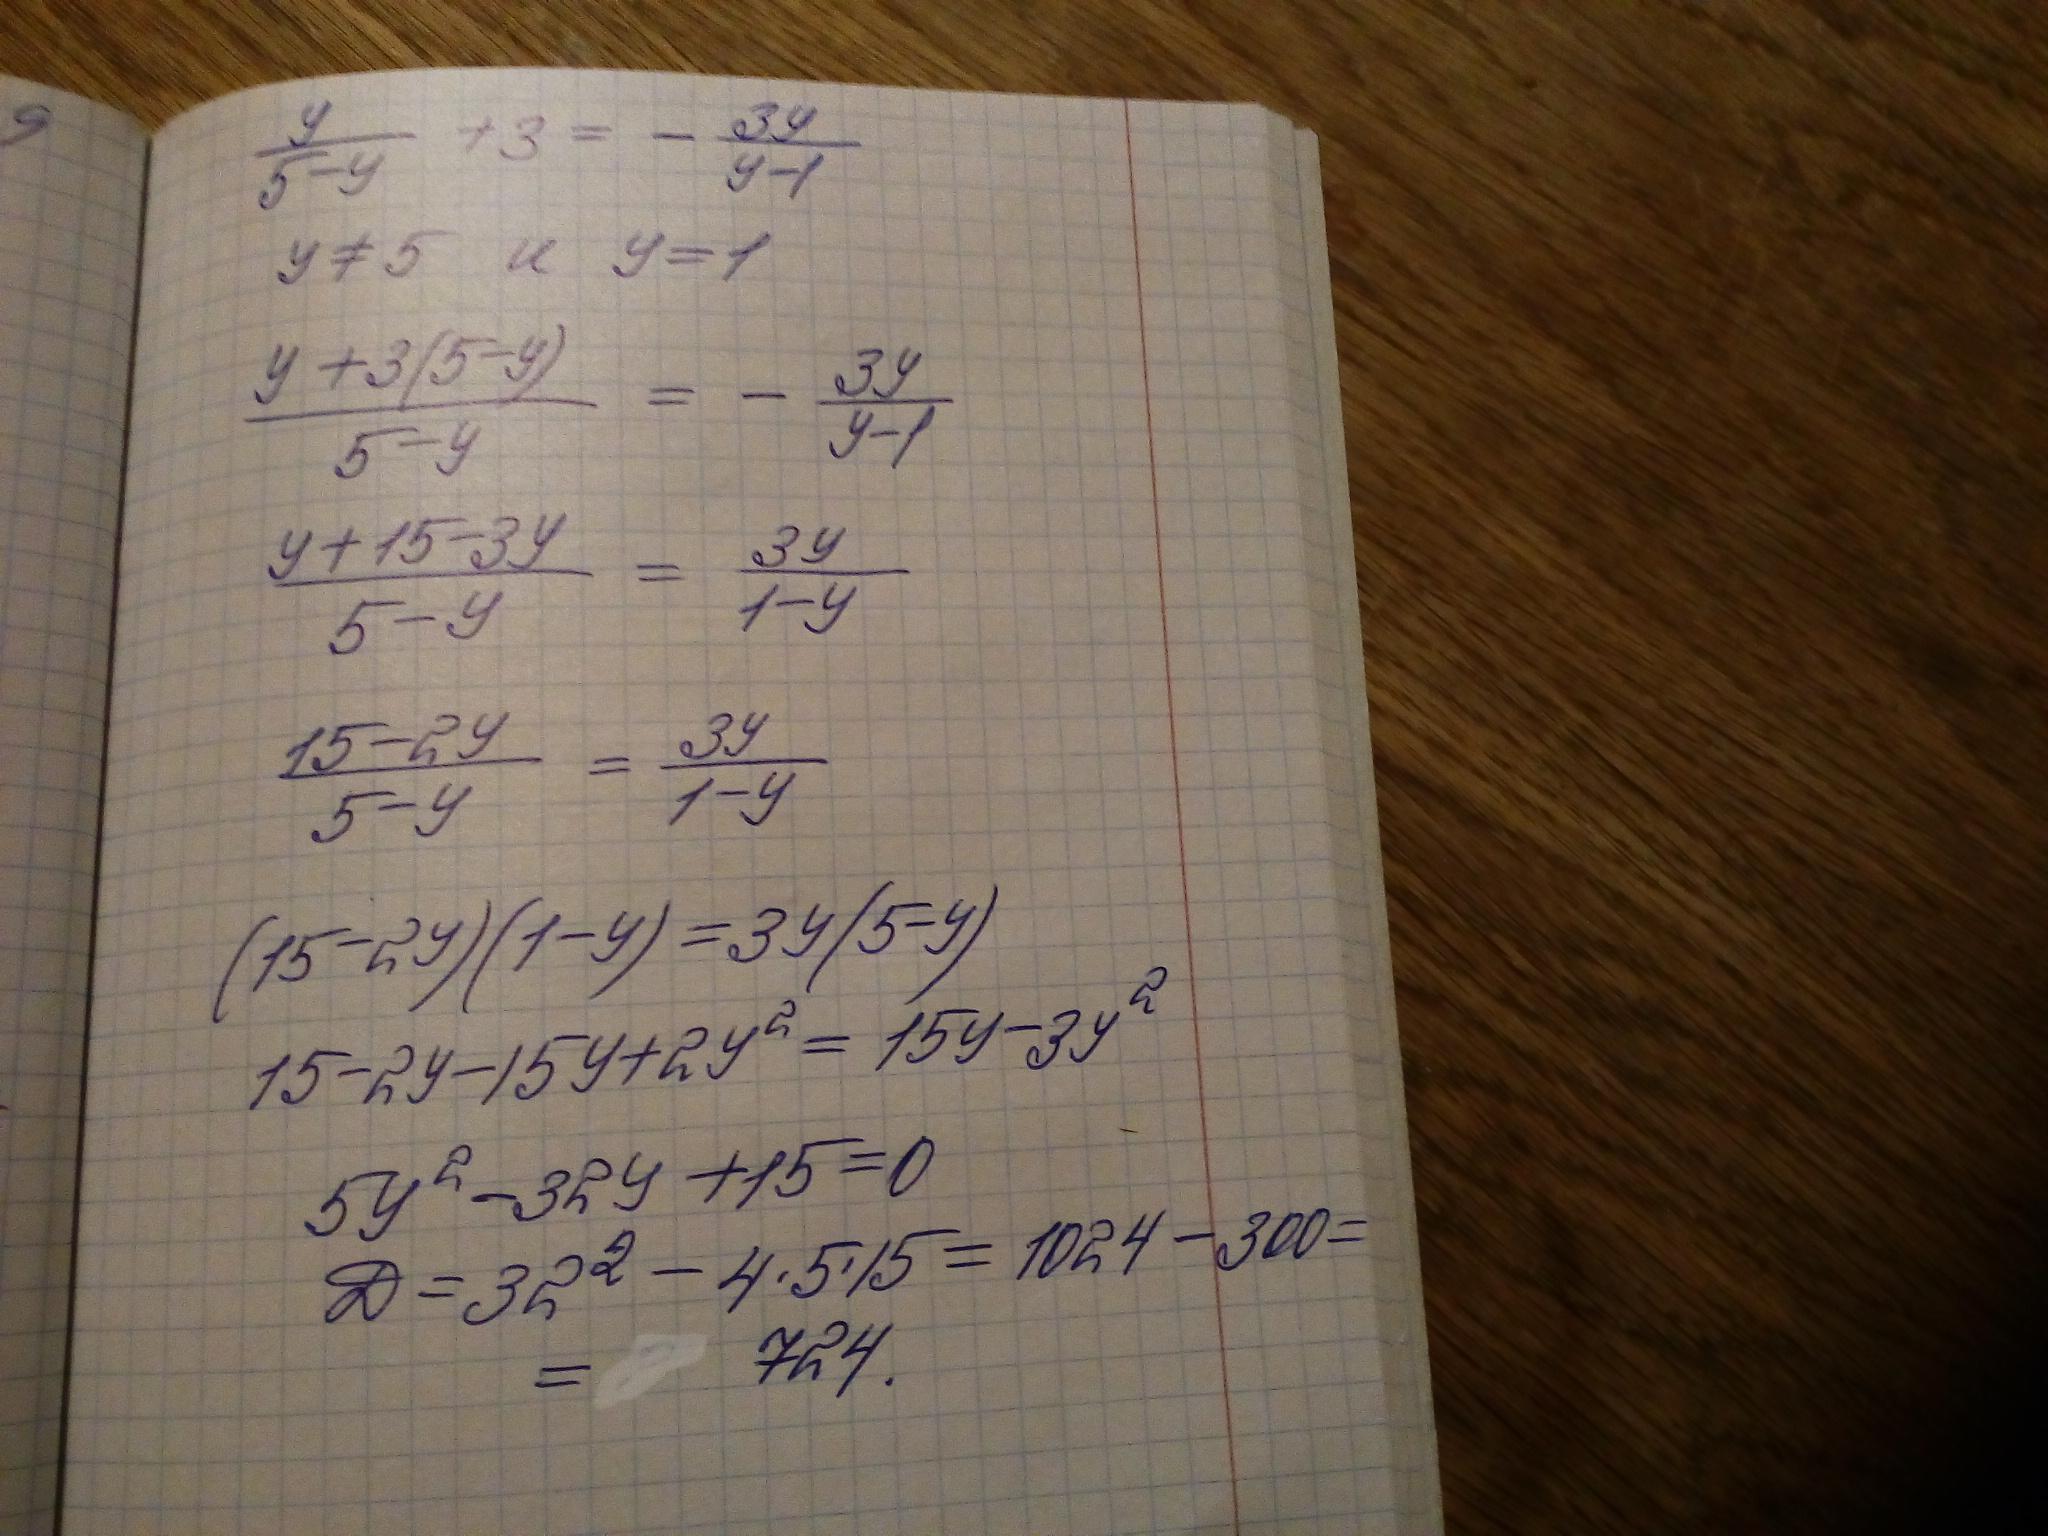 y/(5-y) + 3 = - 3y/(y-1)
y ≠ 5 и y = 1
(y + 3(5-y))/(5-y) = - 3y/(y-1)
(y + 15 - 3y)/(5-y) = 3y/(1-y)
(15 - 2y)/(5-y) = 3y/(1-y)
(15 - 2y)(1 - y) = 3y(5 - y)
15 - 2y - 15y + 2y² = 15y - 3y²
5y² - 32y + 15 = 0
Д = 32² - 4·5·15 = 1024 - 300 =
= 724.